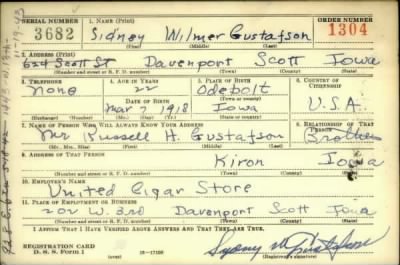 SERIAL NUMBER 1. NAME (Print) ORDER NUMBER
3682 Sidney Wilmer Gustafson 1304
(First) (Middle) (Last)
2. ADDRESS (Print)
624 Scott St Davenport Scott Iowa
(Number and street or R. F. D. number) (Town) (County) (State)
3. TELEPHONE 4. AGE IN YEARS 5. PLACE OF BIRTH 6. COUNTRY OF CITIZENSHIP
None 22 Odebolt
DATE OF BIRTH (Town or county)
Mar 7 1918 Iowa U.S.A.
(Exchange) (Number) (Mo.) (Day) (Yr.) (State or country)
7. NAME OF PERSON WHO WILL ALWAYS KNOW YOUR ADDRESS 8. RELATIONSHIP OF THAT PERSON
Mr Russell H. Gustafson Brother
(Mr., Mrs., Miss) (First) (Middle) (Last)
9. ADDRESS OF THAT PERSON
Kiron Iowa
(Number and street or R. F. D. number) (Town) (County) (State)
10. EMPLOYER'S NAME
United Cigar Store
11. PLACE OF EMPLOYMENT OR BUSINESS
202 W. 3rd Davenport Scott Iowa
(Number and street or R. F. D. number) (Town) (County) (State)
I AFFIRM THAT I HAVE VERIFIED ABOVE ANSWERS AND THAT THEY ARE TRUE.
REGISTRATION CARD
D. S. S. Form 1 (over) 16—17105 Sydney W Gustafson